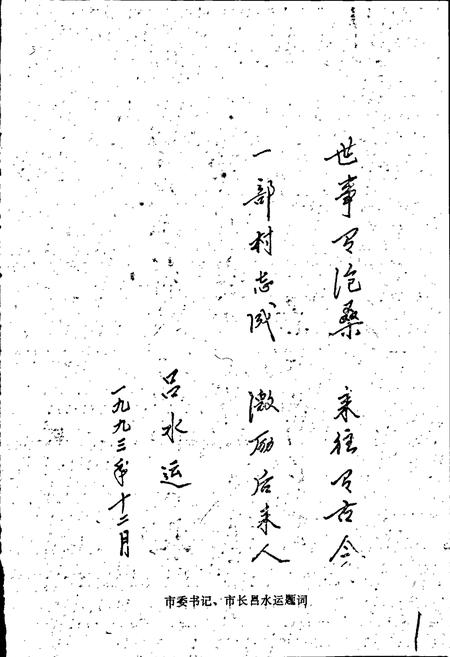 世事沧桑 来往古今
一部村志成 激励后来人
吕水运
一九九三年十二月
市委书记、市长吕水运题词
1